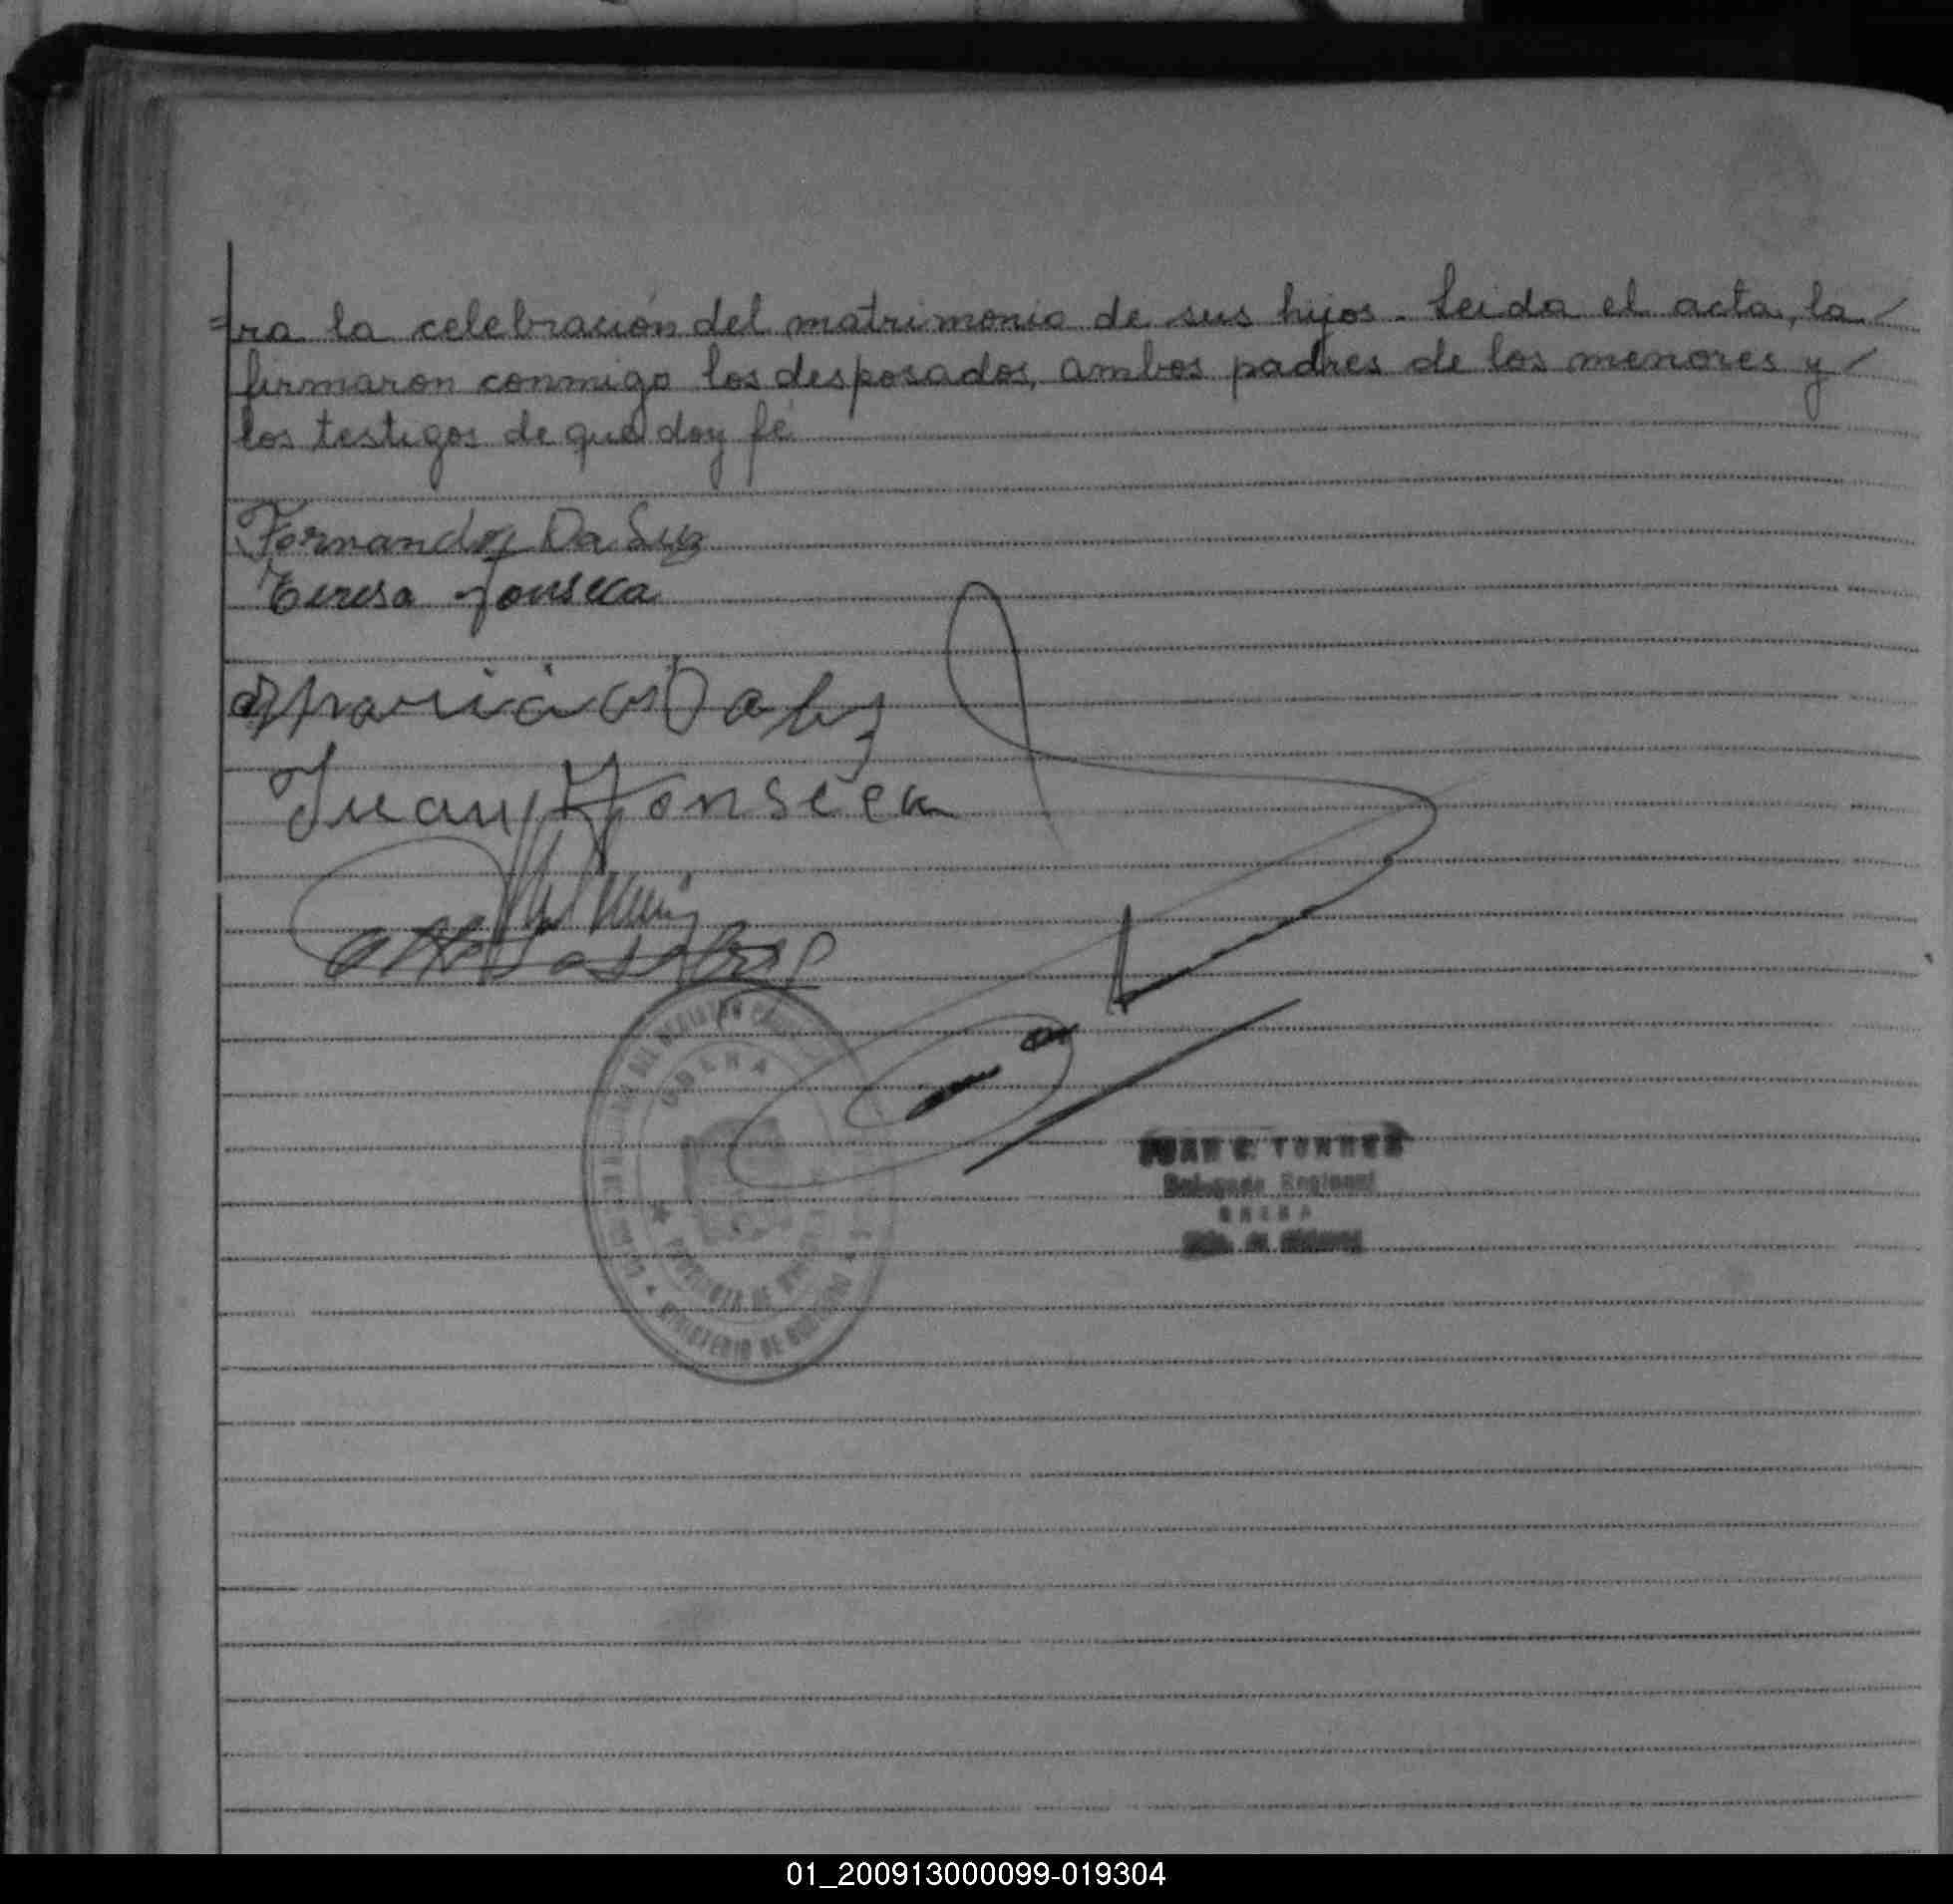 =ra la celebración del matrimonio de sus hijos. Leida el acta, la
firmaron conmigo los desposados, ambos padres de los menores y
los testigos de que doy fé
Fernando Da Luz
Teresa Fonseca
Juan Fonseca
OBERA
MINISTERIO DE GOBIERNO
JUAN C. TORRES
Delegado Regional
OBERA
01_200913000099-019304